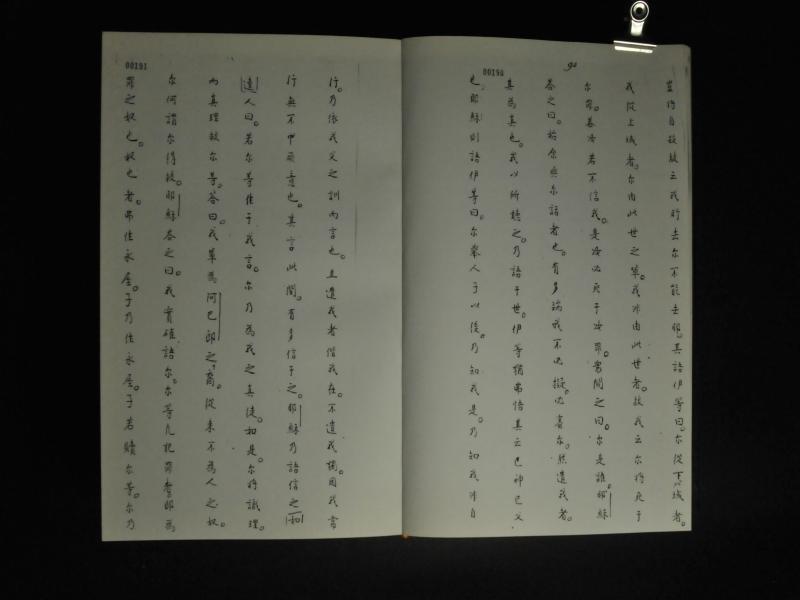 00190
90
豈將自殺故云我所去尔不能去耶。其語伊等曰。尔從下域者。
我從上域者。尔由此世之輩。我非由此世者。故我云尔將死于
尔罪。蓋汝若不信我。是汝必死于汝罪。曰之曰。尔是誰。耶穌
答之曰。於余與尔語者也。有多端我不必擬。必審尔。然遣我者。
其為真也。我以所聽之。乃語于世。伊等猶弗悟其云己神已父
也。耶穌則語伊等曰。尔舉人子以後。乃知我是。乃知我非自
00191
行。乃依我父之訓而言也。且遣我者偕我在。不遺我獨。因我常
行無不中厥意也。其言此間。有多信于之。耶穌乃語信之
達人曰。若尔等住于我言。尔乃為我之真徒。和是尔將識理。
而真理救尔等。答曰。我輩為阿巴郎之裔。從來不為人之奴。
尔何謂尔得救。耶穌答之曰。我實確語尔。尔等凡犯罪者即為
罪之奴也。奴也者。弗住永屋。子乃住永屋。子若贖尔等。尔乃